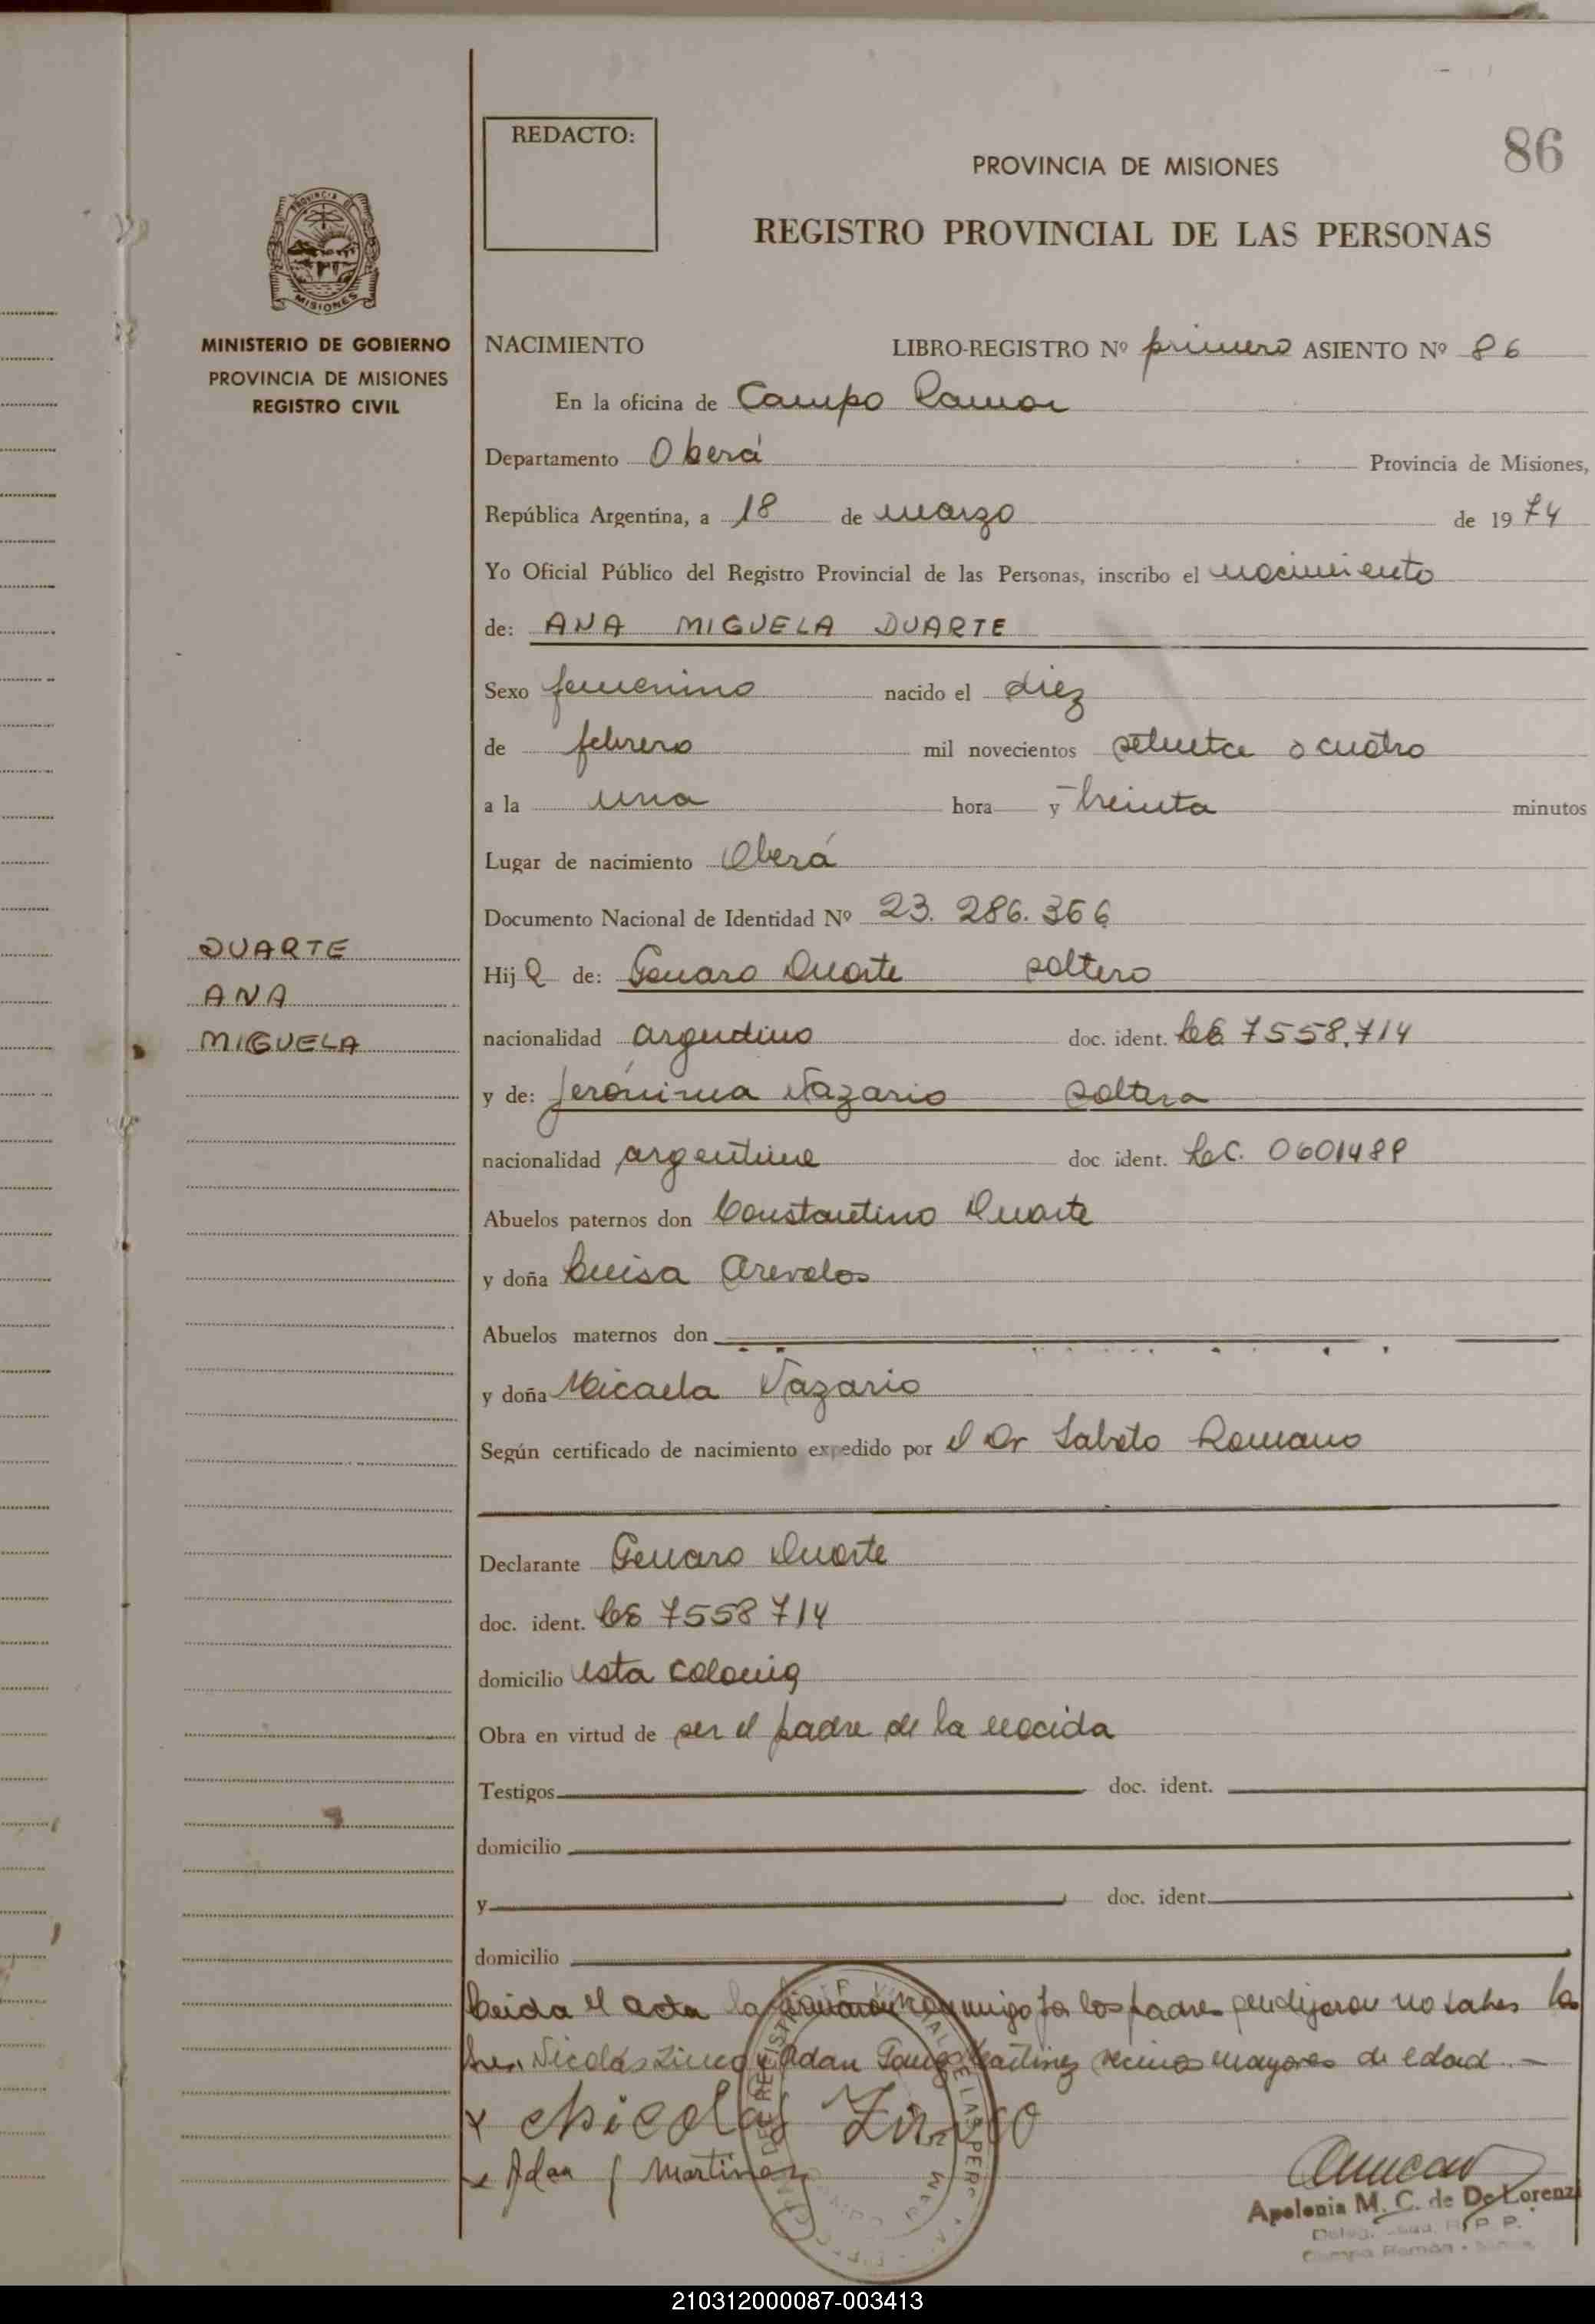 86
REDACTO:
PROVINCIA DE MISIONES
REGISTRO PROVINCIAL DE LAS PERSONAS
PROVINCIA DE
MISIONES
MINISTERIO DE GOBIERNO
PROVINCIA DE MISIONES
REGISTRO CIVIL
NACIMIENTO LIBRO-REGISTRO Nº primero ASIENTO Nº 86
En la oficina de Campo Ramon
Departamento Oberá Provincia de Misiones,
República Argentina, a 18 de marzo de 1974
Yo Oficial Público del Registro Provincial de las Personas, inscribo el nacimiento
de: ANA MIGUELA DUARTE
Sexo femenino nacido el diez
de febrero mil novecientos setenta y cuatro
a la una hora y treinta minutos
Lugar de nacimiento Oberá
Documento Nacional de Identidad Nº 23.286.366
DUARTE
ANA
MIGUELA
Hija de: Genaro Duarte soltero
nacionalidad argentino doc. ident. LE 7558.714
y de: Jerónima Nazario soltera
nacionalidad argentina doc ident. LC. 0601489
Abuelos paternos don Constantino Duarte
y doña Luisa Arevalos
Abuelos maternos don
y doña Micaela Nazario
Según certificado de nacimiento expedido por el Dr Sabeto Romano
Declarante Genaro Duarte
doc. ident. LE 7558714
domicilio esta colonia
Obra en virtud de ser el padre de la nacida
Testigos doc. ident.
domicilio
y doc. ident.
domicilio
Leida el acta la firmaron conmigo los padres que dijeron no saber lo
Nicolás y Adan Martinez vecinos mayores de edad
x Nicolas
x Adan Martinez
Apolonia M. C. de De Lorenzi
R. P. P.
Campo Ramón
210312000087-003413